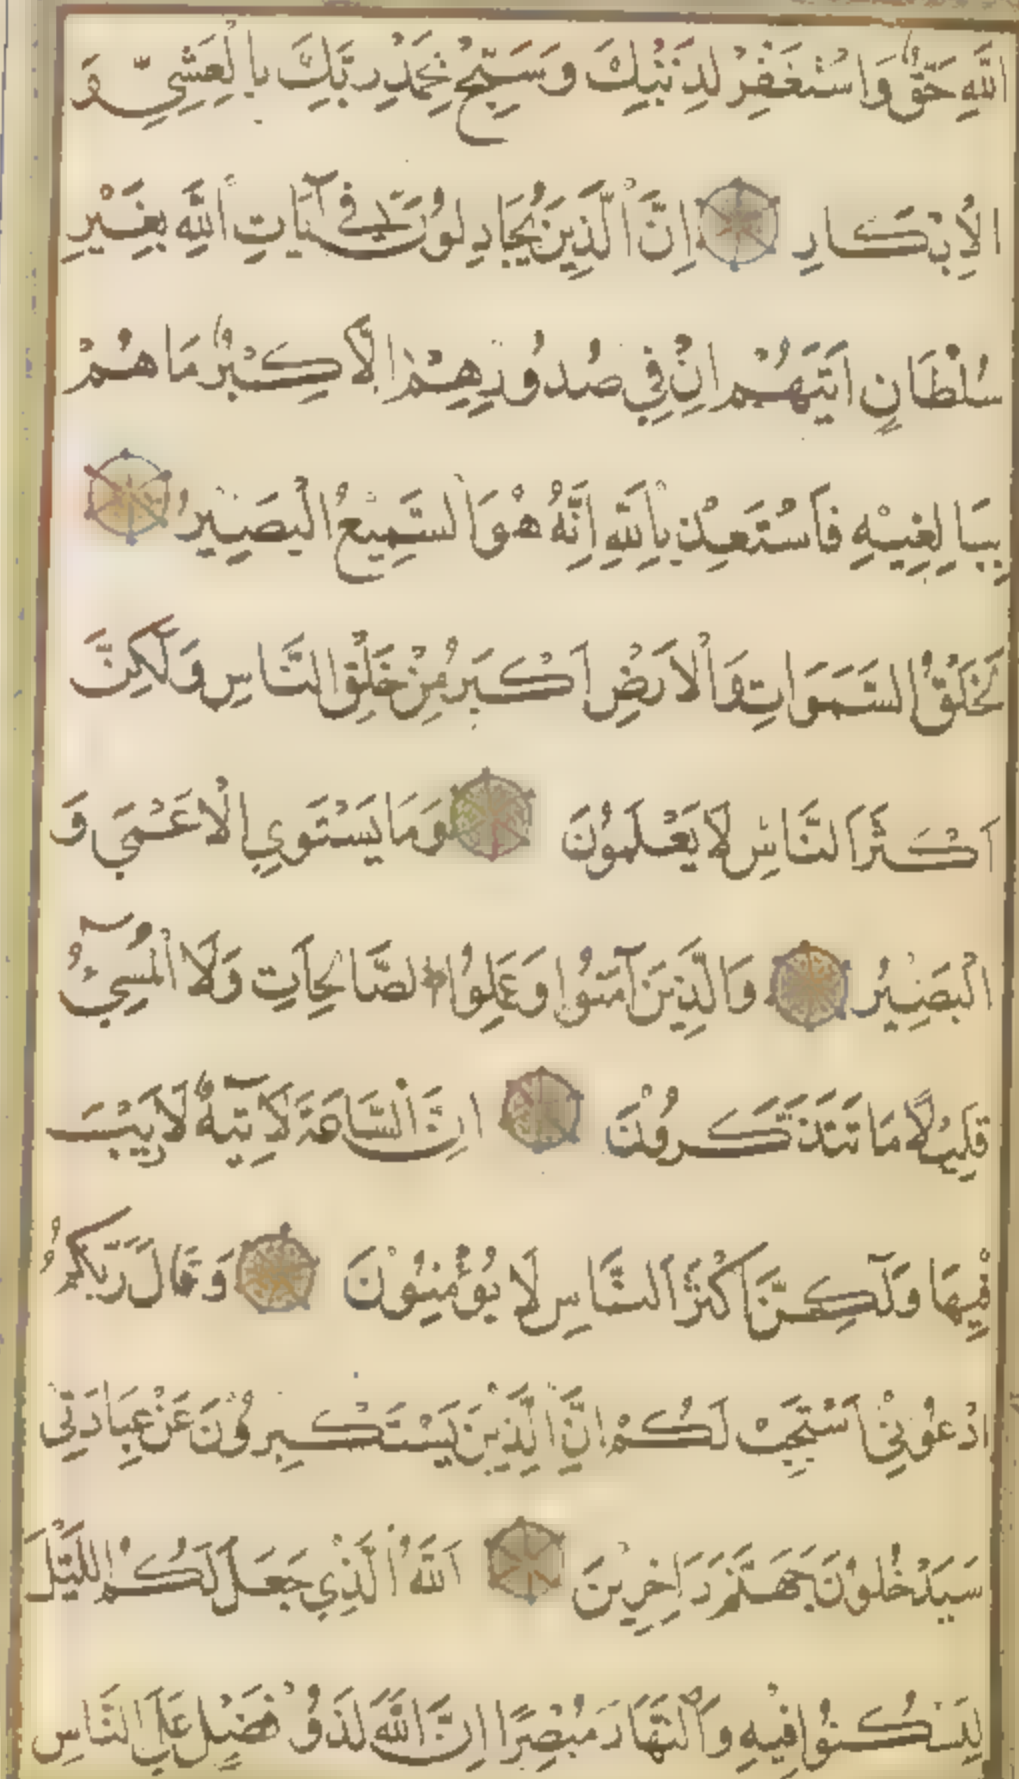 اللَّهِ حَقٌّ وَاسْتَغْفِرْ لِذَنْبِكَ وَسَبِّحْ بِحَمْدِ رَبِّكَ بِالْعَشِيِّ وَ
الْاِبْكَارِ اِنَّ الَّذِينَ يُجَادِلُونَ فِي آيَاتِ اللَّهِ بِغَيْرِ
سُلْطَانٍ اَتَيهُمْ اِنْ فِي صُدُورِهِمْ اِلَّا كِبْرٌ مَا هُمْ
بِبَالِغِيهِ فَاسْتَعِذْ بِاللَّهِ اِنَّهُ هُوَ السَّمِيعُ الْبَصِيرُ
لَخَلْقُ السَّمَوَاتِ وَالْاَرْضِ اَكْبَرُ مِنْ خَلْقِ النَّاسِ وَلَكِنَّ
اَكْثَرَ النَّاسِ لَا يَعْلَمُونَ وَمَا يَسْتَوِي الْاَعْمَى وَ
الْبَصِيرُ وَالَّذِينَ آمَنُوا وَعَمِلُوا الصَّالِحَاتِ وَلَا الْمُسِيٓءُ
قَلِيلًا مَا تَتَذَكَّرُونَ اِنَّ السَّاعَةَ لَآتِيَةٌ لَا رَيْبَ
فِيهَا وَلَكِنَّ اَكْثَرَ النَّاسِ لَا يُؤْمِنُونَ وَقَالَ رَبُّكُمُ
ادْعُونِي اَسْتَجِبْ لَكُمْ اِنَّ الَّذِينَ يَسْتَكْبِرُونَ عَنْ عِبَادَتِي
سَيَدْخُلُونَ جَهَنَّمَ دَاخِرِينَ اَللَّهُ الَّذِي جَعَلَ لَكُمُ اللَّيْلَ
لِتَسْكُنُوا فِيهِ وَالنَّهَارَ مُبْصِرًا اِنَّ اللَّهَ لَذُو فَضْلٍ عَلَى النَّاسِ